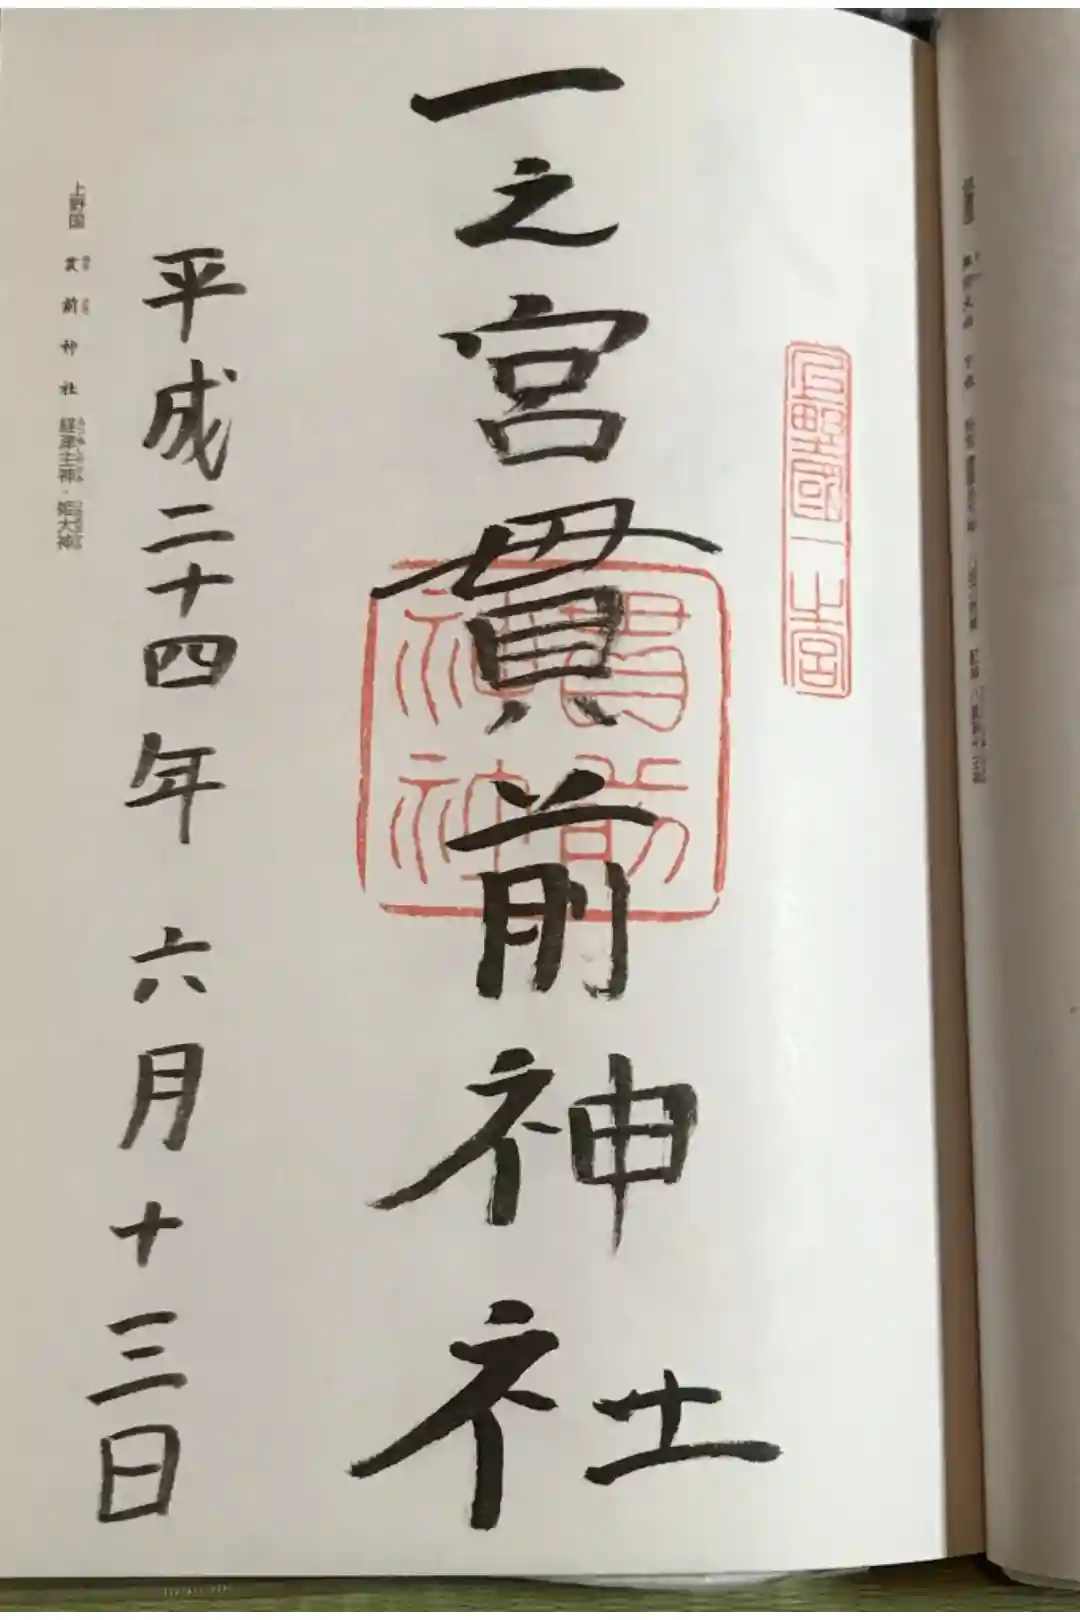 上野國一之宮
一之宮貫前神社
貫前神社
平成二十四年 六月十三日
上野国 貫前神社 経津主神・姫大神